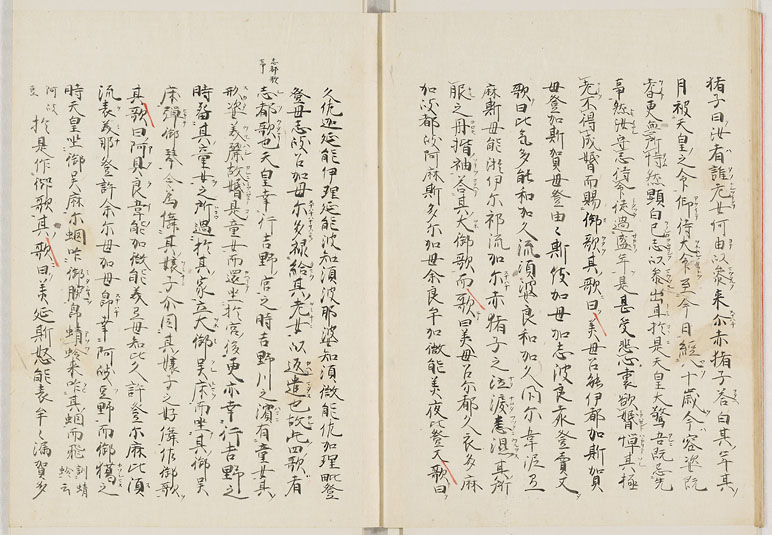 猪子曰汝者誰老女何由以参来尓赤猪子答白其年其
月被天皇之命仰待大命至今日経八十歳今容姿既
耆更無所恃然顕白己志以参出耳於是天皇大驚吾既忘先
事然汝守志待命徒過盛年是甚愛悲裏欲婚憚其極
老不得成婚而賜御歌其歌曰美母呂能伊都加斯賀
母登加斯賀母登由々斯伎加母加志波良袁登賣又
歌曰比気多能和加久流須婆良和加久閇尓韋泥弖
麻斯母能淤伊尓祁流加尓赤猪子之泣涙悉湿其所
服之丹揩袖答其大御歌而歌曰美母呂尓都久夜多麻
加岐都岐阿麻斯多尓加母余良牟加微能美夜比登又歌曰
久佐迦延能伊理延能波知須波那婆知須微能佐加理毗登
登母志岐呂加母尓多禄給其老女以返遣也故此四歌者
志都歌
事
志都歌也天皇幸行吉野宮之時吉野川之濱有童女其
形姿美麗故婚是童女而還坐於宮後更亦幸行吉野之
時留其童女之所遇於其處立大御呉床而坐其御呉
床弾御琴令為儛其嬢子尓因其嬢子之好儛作御歌
其歌曰阿具良韋能加微能美弖母知比久許登尓麻比須
流袁美那登許余尓母加母即幸阿岐豆野而御獦之
時天皇坐御呉床尓蝈咋御腕即蜻蛉来咋其蝈而飛
訓蜻
蛉云
阿岐
豆
於是作御歌其歌曰美延斯怒能袁牟漏賀多